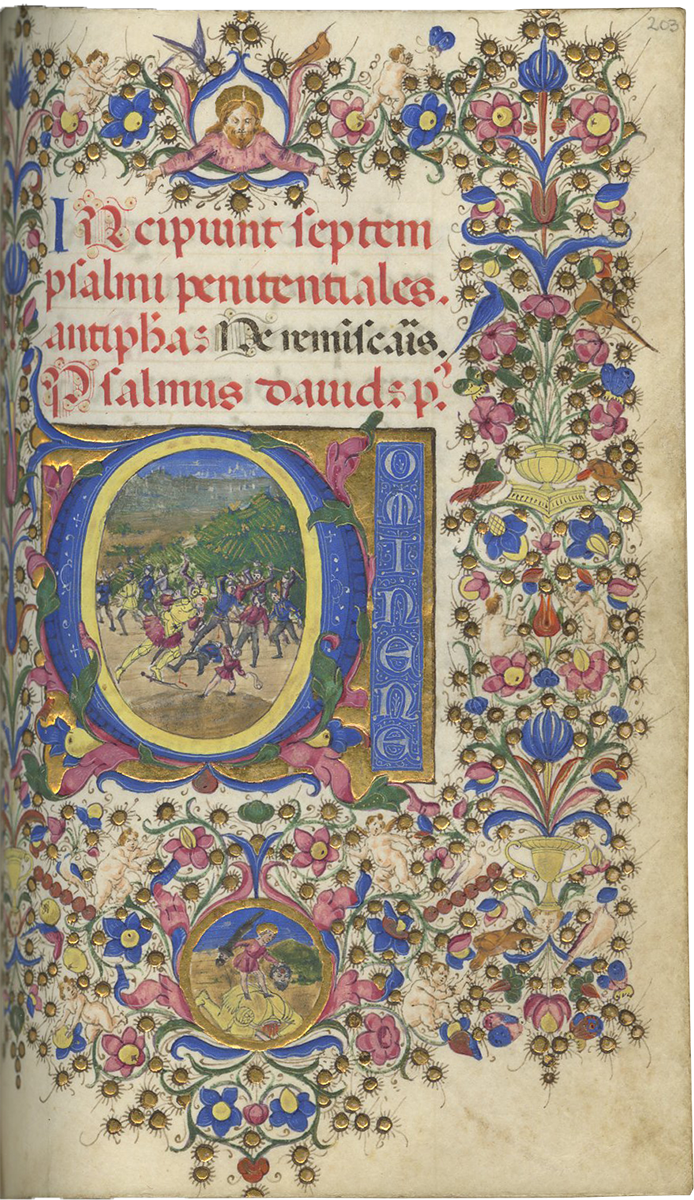 203
INcipiunt septem
psalmi penitentiales.
antipha: Ne reminiscaris.
Psalmus dauid: p.
DOMINE NE